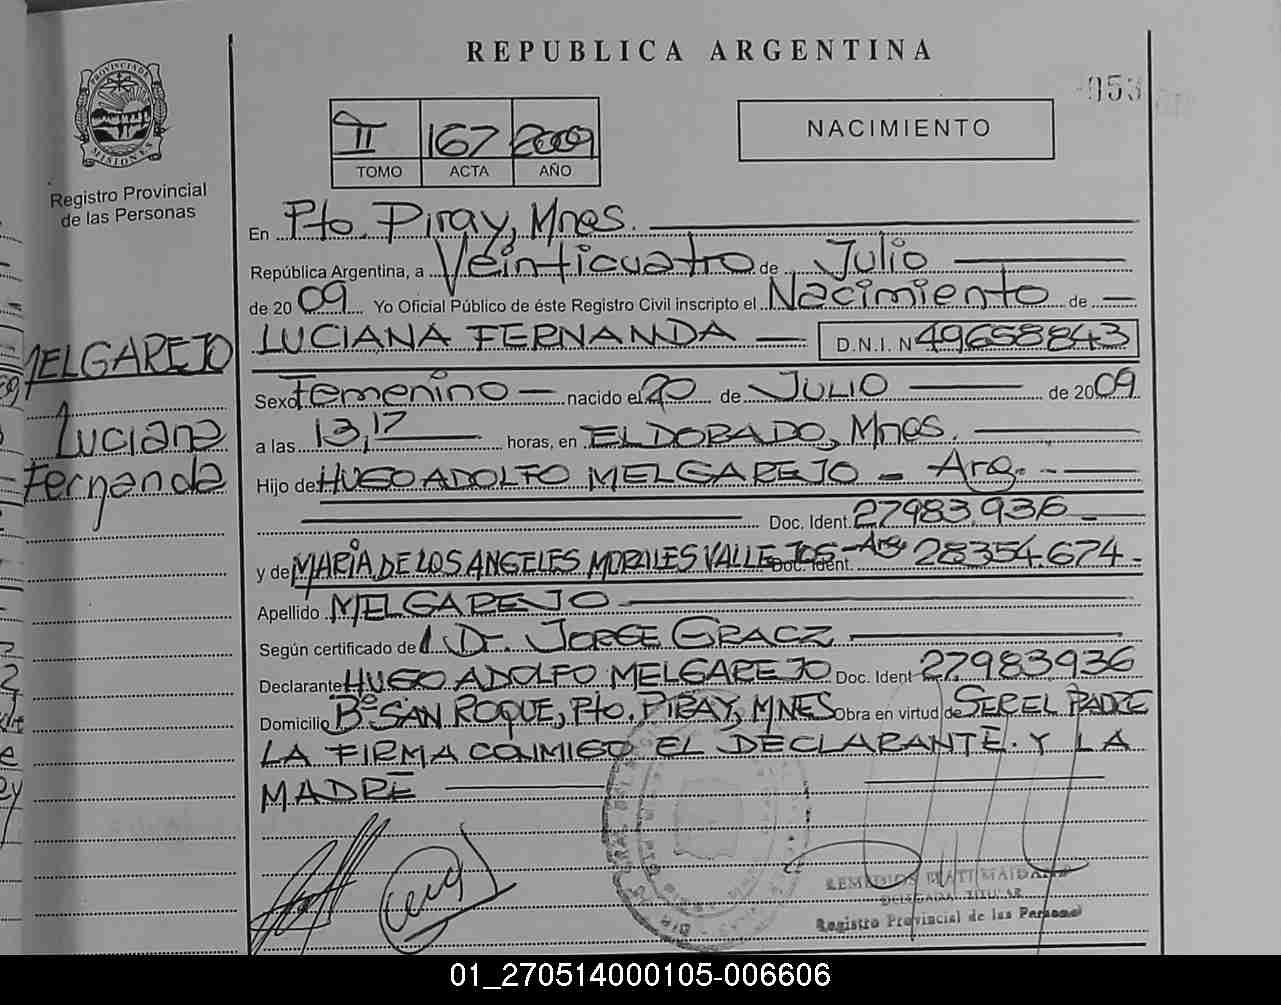 REPUBLICA ARGENTINA
053
PROVINCIA DE MISIONES
Registro Provincial
de las Personas
II 167 2009
TOMO ACTA AÑO
NACIMIENTO
En Pto. Piray, Mnes.
República Argentina, a Veinticuatro de Julio
de 2009 Yo Oficial Público de éste Registro Civil inscripto el Nacimiento de
LUCIANA FERNANDA D.N.I. N 49658843
MELGAREJO
Luciana
Fernanda
Sexo Femenino nacido el 20 de JULIO de 2009
a las 13,17 horas, en ELDORADO, Mnes.
Hijo de HUGO ADOLFO MELGAREJO - Arg.
Doc. Ident. 27983.936
y de MARIA DE LOS ANGELES MORALES VALLEJOS - Arg Doc. Ident. 28354.674
Apellido MELGAREJO
Según certificado de Dr. JORGE GRACZ
Declarante HUGO ADOLFO MELGAREJO Doc. Ident 27983936
Domicilio Bº SAN ROQUE, Pto. PIRAY, MNES Obra en virtud de SER EL PADRE
LA FIRMA CONMIGO EL DECLARANTE. Y LA
MADRE
REMEDIOS
DELEGADA TITULAR
Registro Provincial de las Personas
01_270514000105-006606